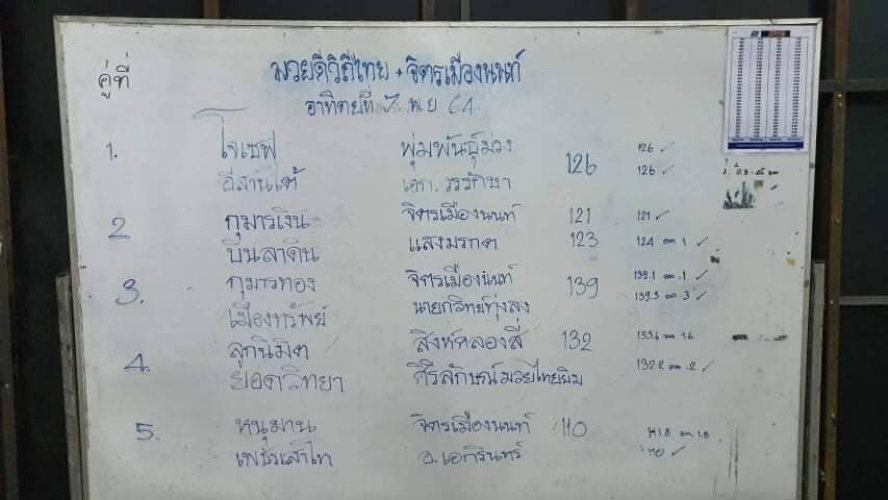 มวยดีวิถีไทย + จิตรเมืองนนท์
คู่ที่
อาทิตย์ที่ พ.ย 64.
1. โจเซฟ พุ่มพันธุ์ม่วง 126 126 ✓
อีสานใต้ วรรักษา 126 ✓
2. กุมารเงิน จิตรเมืองนนท์ 121 121 ✓
บินลาดิน แสงมรกต 123 124 ลด 1 ✓
3. กุมารทอง จิตรเมืองนนท์ 139 139.1 ลด .1 ✓
เมืองทรัพย์ นายกวิทย์ทุ่งสง 139.3 ลด .3 ✓
4. ลูกนิมิต สิงห์คลองสี่ 132 133.6 ลด 1.6
ยอดวิทยา ศิริลักษณ์มวยไทยยิม 132.2 ลด .2 ✓
5. หนุมาน จิตรเมืองนนท์ 110 111.8 ลด 1.8
เพชรเสาโท อ.เอกรินทร์ 110 ✓